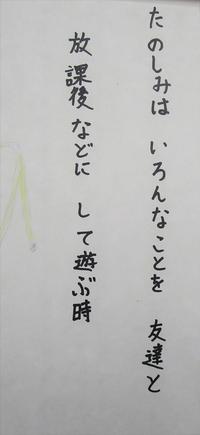 たのしみは いろんなことを 友達と
放課後などに して遊ぶ時